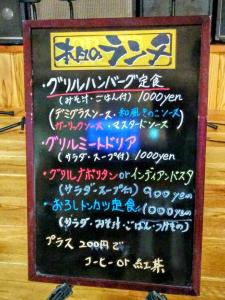 本日のランチ
・グリルハンバーグ定食
(みそ汁・ごはん付) 1000yen
(デミグラスソース・和風きのこソース
ガーリックソース・マスタードソース
・グリルミートドリア
(サラダ・スープ付) 1000yen
・グリルナポリタンorインディアンパスタ
(サラダ・スープ付) 900yen
・おろしトンカツ定食 1000yen
(サラダ・みそ汁・ごはん・つけもの)
プラス200円で
コーヒーor紅茶